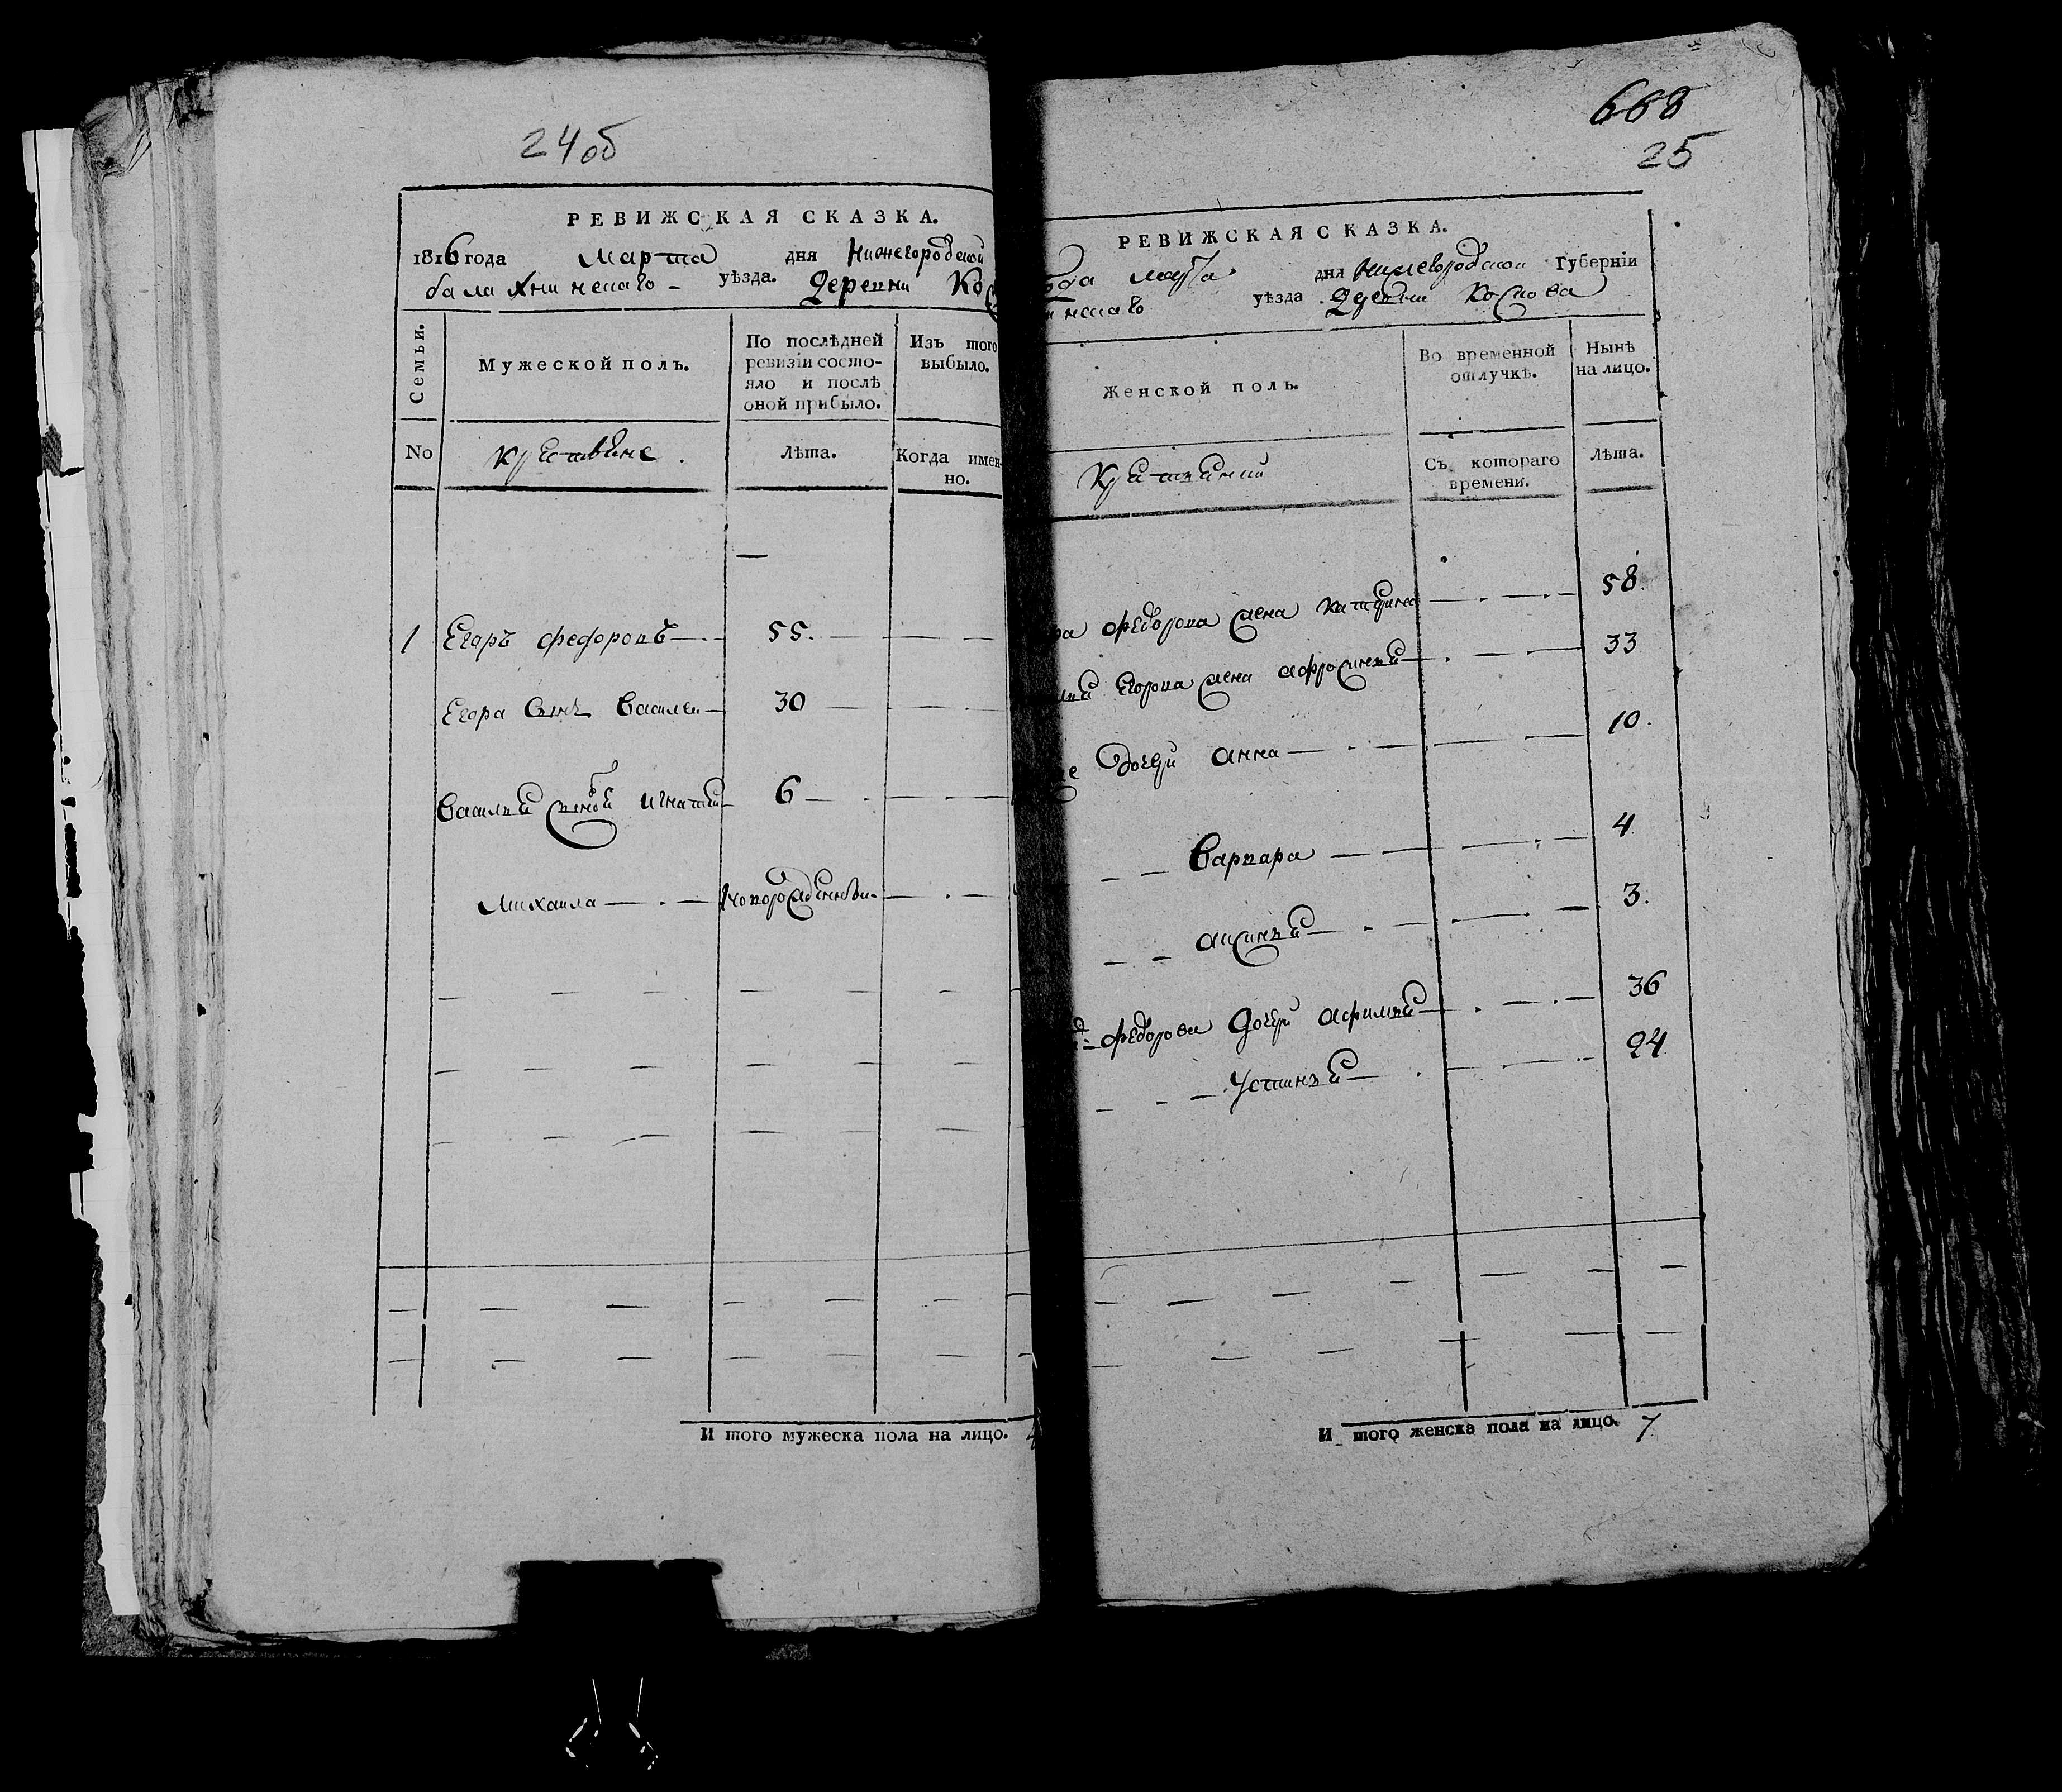 24об
РЕВИЖСКАЯ СКАЗКА.
1816 года марта дня Нижегородской
балахнинскаго уѣзда. деревни Кос
Семьи.
Мужеской полъ.
По послѣдней ревизіи состо-
яло и послѣ
оной прибыло.
Изъ того
выбыло.
No
крестьяне.
Лѣта.
Когда имен-
но.
1 Егоръ федоровъ 55.
Егора сынъ Василеи 30
Василья сыновья игнатей 6
Михаила новорожденнои
И того мужеска пола на лицо. 4
668
25
РЕВИЖСКАЯ СКАЗКА.
года марта дня нижегородской Губерніи
нскаго уѣзда деревни Коснова
Женской полъ.
Во временной
отлучкѣ.
Нынѣ
на лицо.
Крестьянки
Съ котораго
времени.
Лѣта.
ра федорова жена катерина 58.
лья Егорова жена афросинья 33
дочери анна 10.
Варвара 4
аксинья 3.
федорова дочери афимья 36
Устинья 24
И того женска пола на лицо. 7